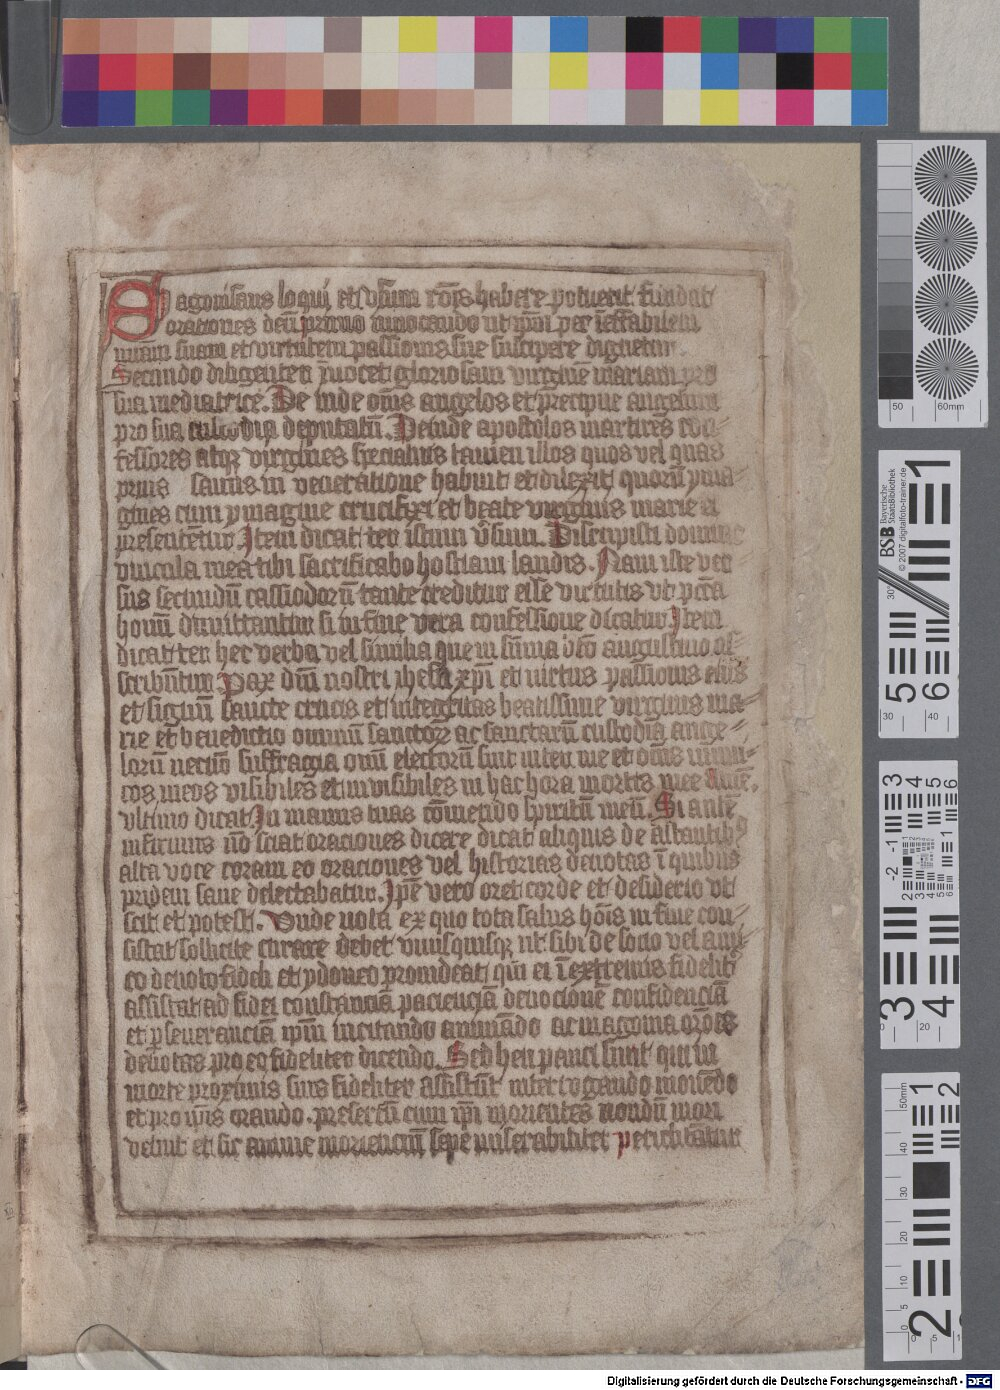 Si agonisans loqui et vsum rōis habere potuerit fundat
orationes deū primo inuocando ut ip̄m per īeffabilem
miām suam et virtutem passionis sue suscipere dignetur.
Secundo diligenter īuocet gloriosam virginē mariam pro
sua mediatrice. De inde om̄s angelos et precipue angelum
pro sua custodia deputatū. Deinde apostolos martires con⸗
fessores atq̄ virgines specialius tamen illos quos vel quas
prius sanus in veneratione habuit et dilexit quorū yma⸗
gines cum ymagine crucifixi et beate virginis marie ei
presentētur Item dicat ter istum v̄sum. Disrupisti domine
vincula mea tibi sacrificabo hostiam laudis. Nam iste ver⸗
sus secundū cassiodorū tante creditur esse virtutis vt pctā
homi dimittantur si in fine vera confessione dicatur Item
dicat ter hec verba vel similia que in sūma bt̄o augustino as⸗
scribūntur Pax dn̄i nostri ihesu xpī et virtus passionis eius
et signū sancte crucis et integritas beatissime virginis ma⸗
rie et benedictio omniū sanctor̄ ac sanctarū custodia ange⸗
lorū necnō suffragia omīu electorū sint inter me et om̄s inimi⸗
cos meos visibiles et invisibiles in hac hora mortis mee Amē.
vltimo dicat In manus tuas cōmendo spiritū meū. Si autē
infirmus nō sciat oraciones dicere dicat aliquis de astantibꝰ
alta voce coram eo oraciones vel historias deuotas ī quibus
pridem sane delectabatur. Ip̄e vero oret corde et desiderio vt
scit et potest. Vnde nota ex quo tota salus hōis in fine con⸗
sistat sollicite curare debet vnusquisq̄ ut sibi de socio vel ami
co deuoto fideli et ydoneo prouideat qui ei ī extremis fidelit̄
assistat ad fidei constanciā pacienciā deuocionē confidenciā
et p̄seueranciā ip̄m incitando animādo ac in agonia or̄ōes
deuotas pro eo fideliter dicendo. Sed heu pauci sunt qui in
morte proximis suis fideliter assistūt interrogando monēdo
et pro ip̄is orando. presertī cum ip̄i morientes nondū mori
velint et sic anime morienciū sepe miserabiliter periclitātur
Digitalisierung gefördert durch die Deutsche Forschungsgemeinschaft - DFG
BSB Bayerische StaatsBibliothek
© 2007 digitalfoto-trainer.de